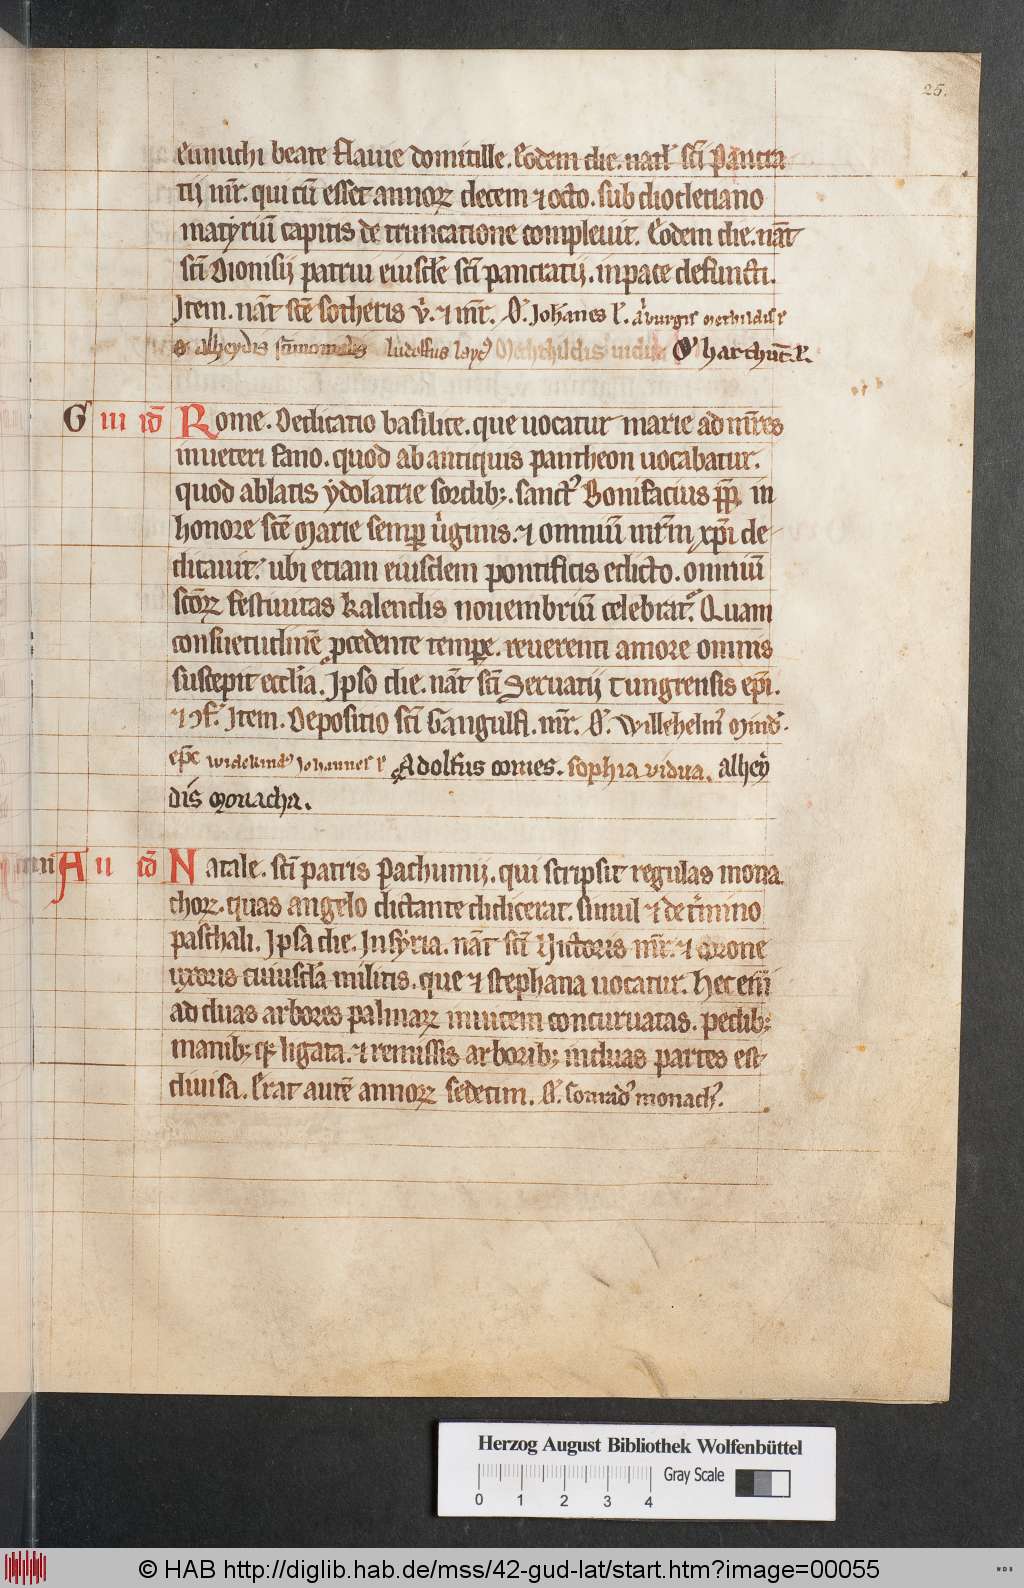 25.
eunuchi beate flauie domitille. Eodem die. natł sc̄i Pancra
tij mr̄. qui cū esset annoꝝ decem ⁊ octo. sub diocletiano
matyriū capitis de truncatione compleuit. Eodem die. nāt
sc̄i Dionisij patrui eiusdē sc̄i pancratij. inpace defuncti.
Item. nāt sc̄e sotheris v̄. ⁊ mr̄. O. Johānes
alheydis ludolfus Mechtildis
G iii id̄ Rome. Dedicatio basilice. que uocatur marie ad mr̄es
inueteri fano. quod abantiquis pantheon uocabatur.
quod ablatis ydolatrie sordib;. sanctꝰ Bonifacius pp̄. in
honore sc̄e Marie semꝑ uirginis. ⁊ omniū mr̄m xp̄i de
dicauit. ubi etiam eiusdem pontificis edicto. omniū
sc̄oꝝ festiuitas kalendis nouembriū celebrat. Quam
consuetudinē p̄cedente tempe. reuerenti amore omnis
suscepit eccl̄ia. Ipso die. nāt sc̄i Seruatij Tungrensis ep̄i.
⁊ ꝯf. Item. Depositio sc̄i Gangulfi. mr̄. O. Willehelmꝰ Mind
ep̄c widekindꝰ Johannes Adolfus comes. sophia vidua. alhey
dis monacha.
A ii id̄ Natale. sc̄i patris Pachumij. qui scripsit regulas mona
choꝝ. quas angelo dictante didicerat. simul ⁊ de t̄mino
paschali. Ipsa die. In syria. nāt sc̄i Victoris mr̄. ⁊ Corone
uxoris cuiusdā militis. que ⁊ stephana uocatur. Hec etiā
ad duas arbores palmaꝝ inuicem concuruatas. pedib;
manib; qꝫ ligata. ⁊ remissis arborib; induas partes est
diuisa. Erat autē annoꝝ sedecim. O. Conradꝰ monachꝰ.
Herzog August Bibliothek Wolfenbüttel
Gray Scale
0 1 2 3 4
© HAB http://diglib.hab.de/mss/42-gud-lat/start.htm?image=00055